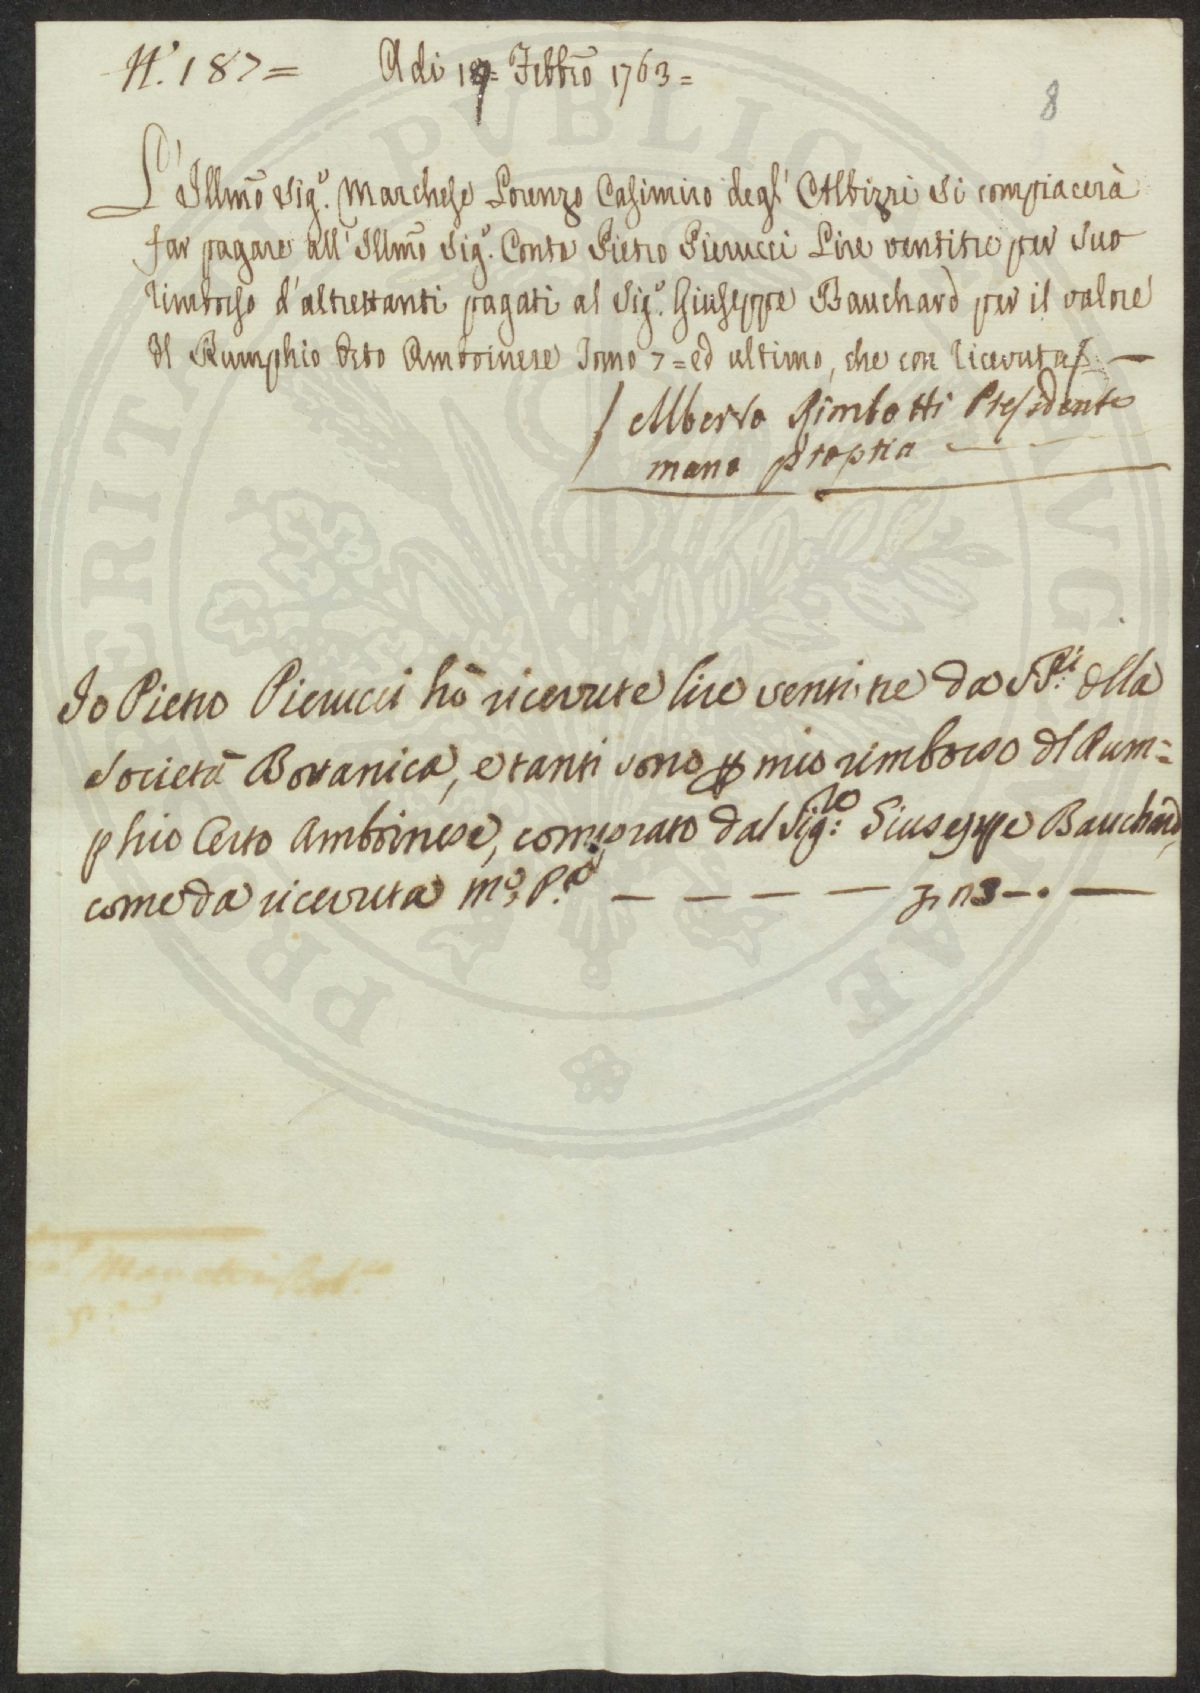 N.° 187 =
Adi 19 = Febbr̃o 1763 =
8
L'Illm̃o Sig.r Marchese Lorenzo Casimiro degl' Albizzi si compiacerà
far pagare all' Illm̃o Sig.r Conte Pietro Pierucci Lire ventitre per suo
rimborso d'altrettanti pagati al Sig.r Giuseppe Bauchard per il valore
del Rumphio Erto Amboinese Tomo 7 = ed ultimo, che con ricevuta —
Alberto Rimbotti Presidente
mano propria
Io Pietro Pierucci hò ricevute lire ventitre da SS.ri della
Società Botanica, e tanti sono p mio rimborso del Rum=
phio Erto Amboinese, comprato dal Sig.re Giuseppe Bauchard,
come da ricevuta m.o P.a — — — — 23 — . —
PVBLIC